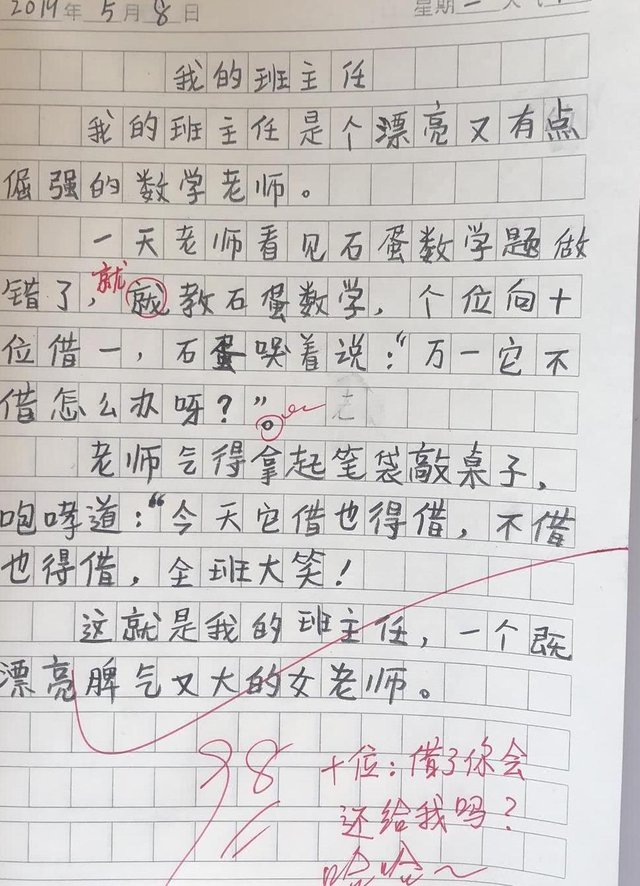 2019年5月8日 星期二 天气
我的班主任
我的班主任是个漂亮又有点
倔强的数学老师。
一天老师看见石蛋数学题做
就
错了，就教石蛋数学，个位向十
位借一，石蛋哭着说：“万一它不
借怎么办呀？”。
老师气得拿起笔袋敲桌子，
咆哮道：“今天它借也得借，不借
也得借，全班大笑！
这就是我的班主任，一个既
漂亮脾气又大的女老师。
98
十位：借了你会
还给我吗？
哈哈～